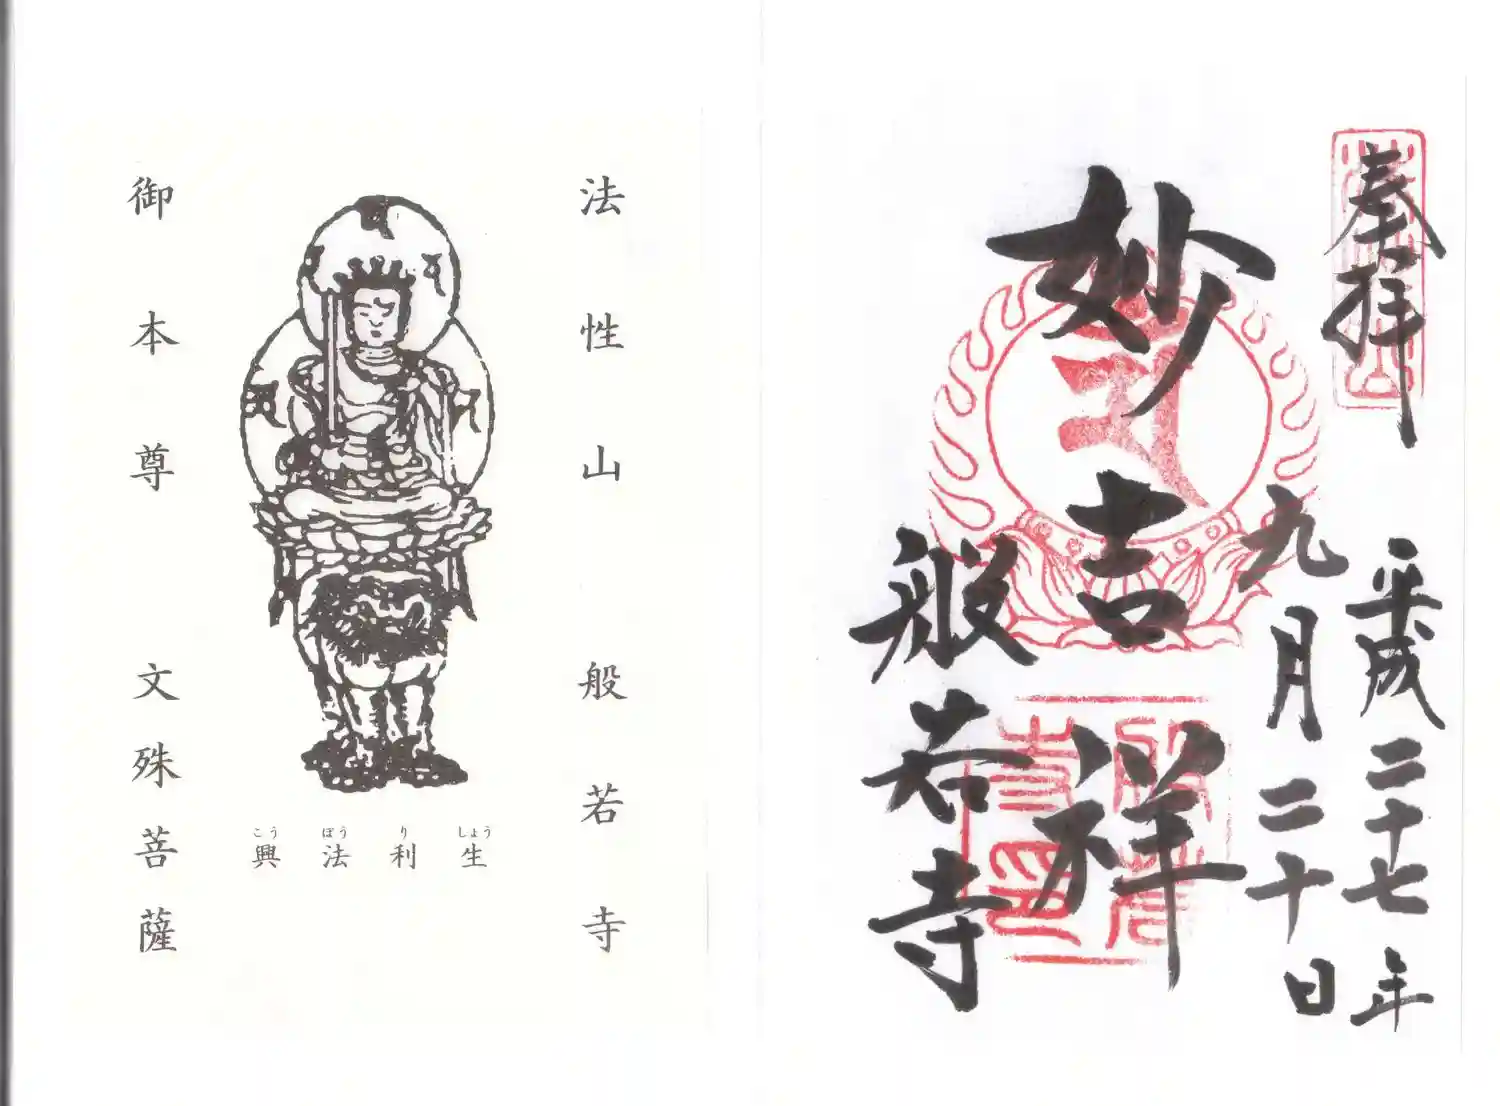 奉拝
平成二十七年
九月二十日
妙吉祥
般若寺
法性山 般若寺
しょう り ぽう こう
生利法興
御本尊 文殊菩薩